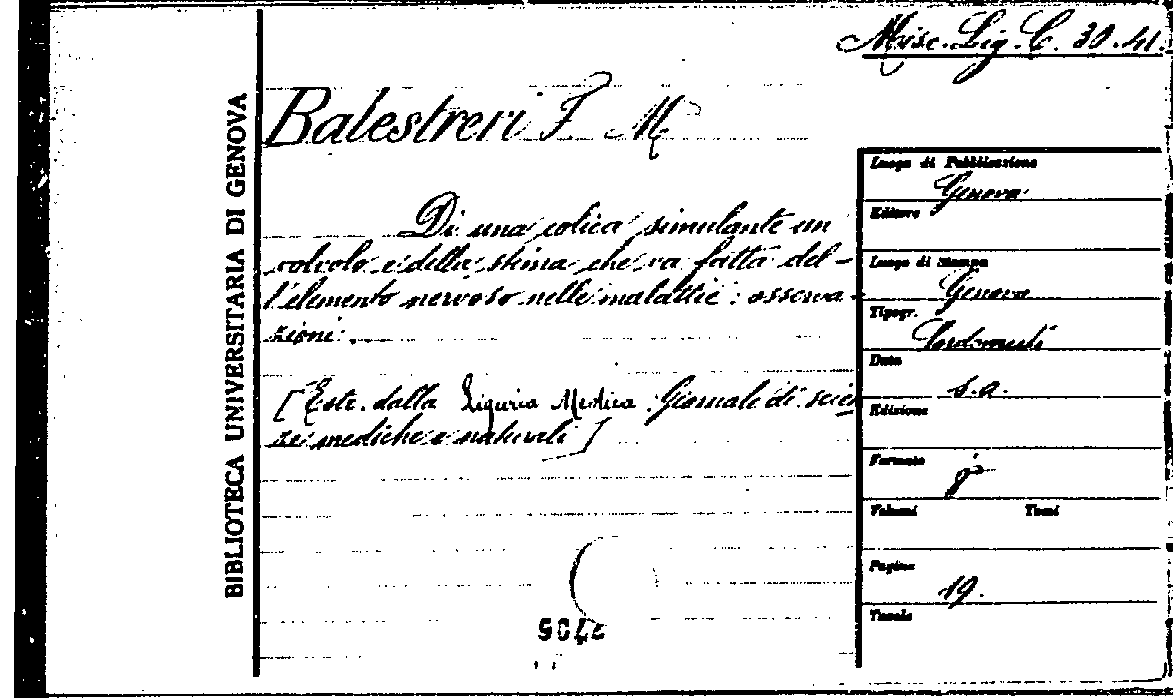 Misc. Lig. C. 30.41.
BIBLIOTECA UNIVERSITARIA DI GENOVA
Balestreri F. M
Di una colica simulante un
volvolo e della stima che va fatta del-
l'elemento nervoso nelle malattie: osserva-
zioni.
[Estr. dalla Liguria Medica: Giornale di scien
ze mediche e naturali]
Luogo di Pubblicazione
Genova
Editore
Luogo di Stampa
Genova
Tipogr.
Data
s.a.
Edizione
Formato
8°
Volumi Tomi
Pagine
19.
Tavole